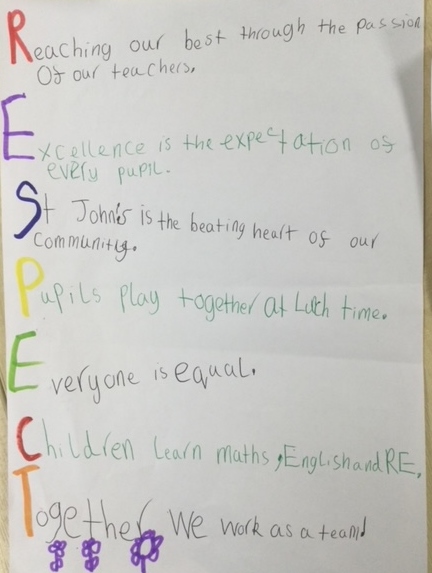 Reaching our best through the passion
Of our teachers.
Excellence is the expectation of
every pupil.
St John's is the beating heart of our
Community.
Pupils play together at Luch time.
Everyone is equal.
Children learn maths, English and RE.
Together we work as a team!